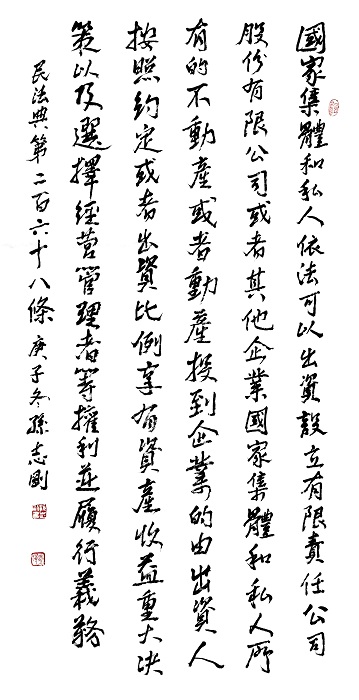 國家集體和私人依法可以出資設立有限責任公司
股份有限公司或者其他企業國家集體和私人所
有的不動產或者動產投到企業的由出資人
按照約定或者出資比例享有資產收益重大决
策以及選擇經营管理者等權利並履行義務
民法典第二百六十八條 庚子冬孫志剛